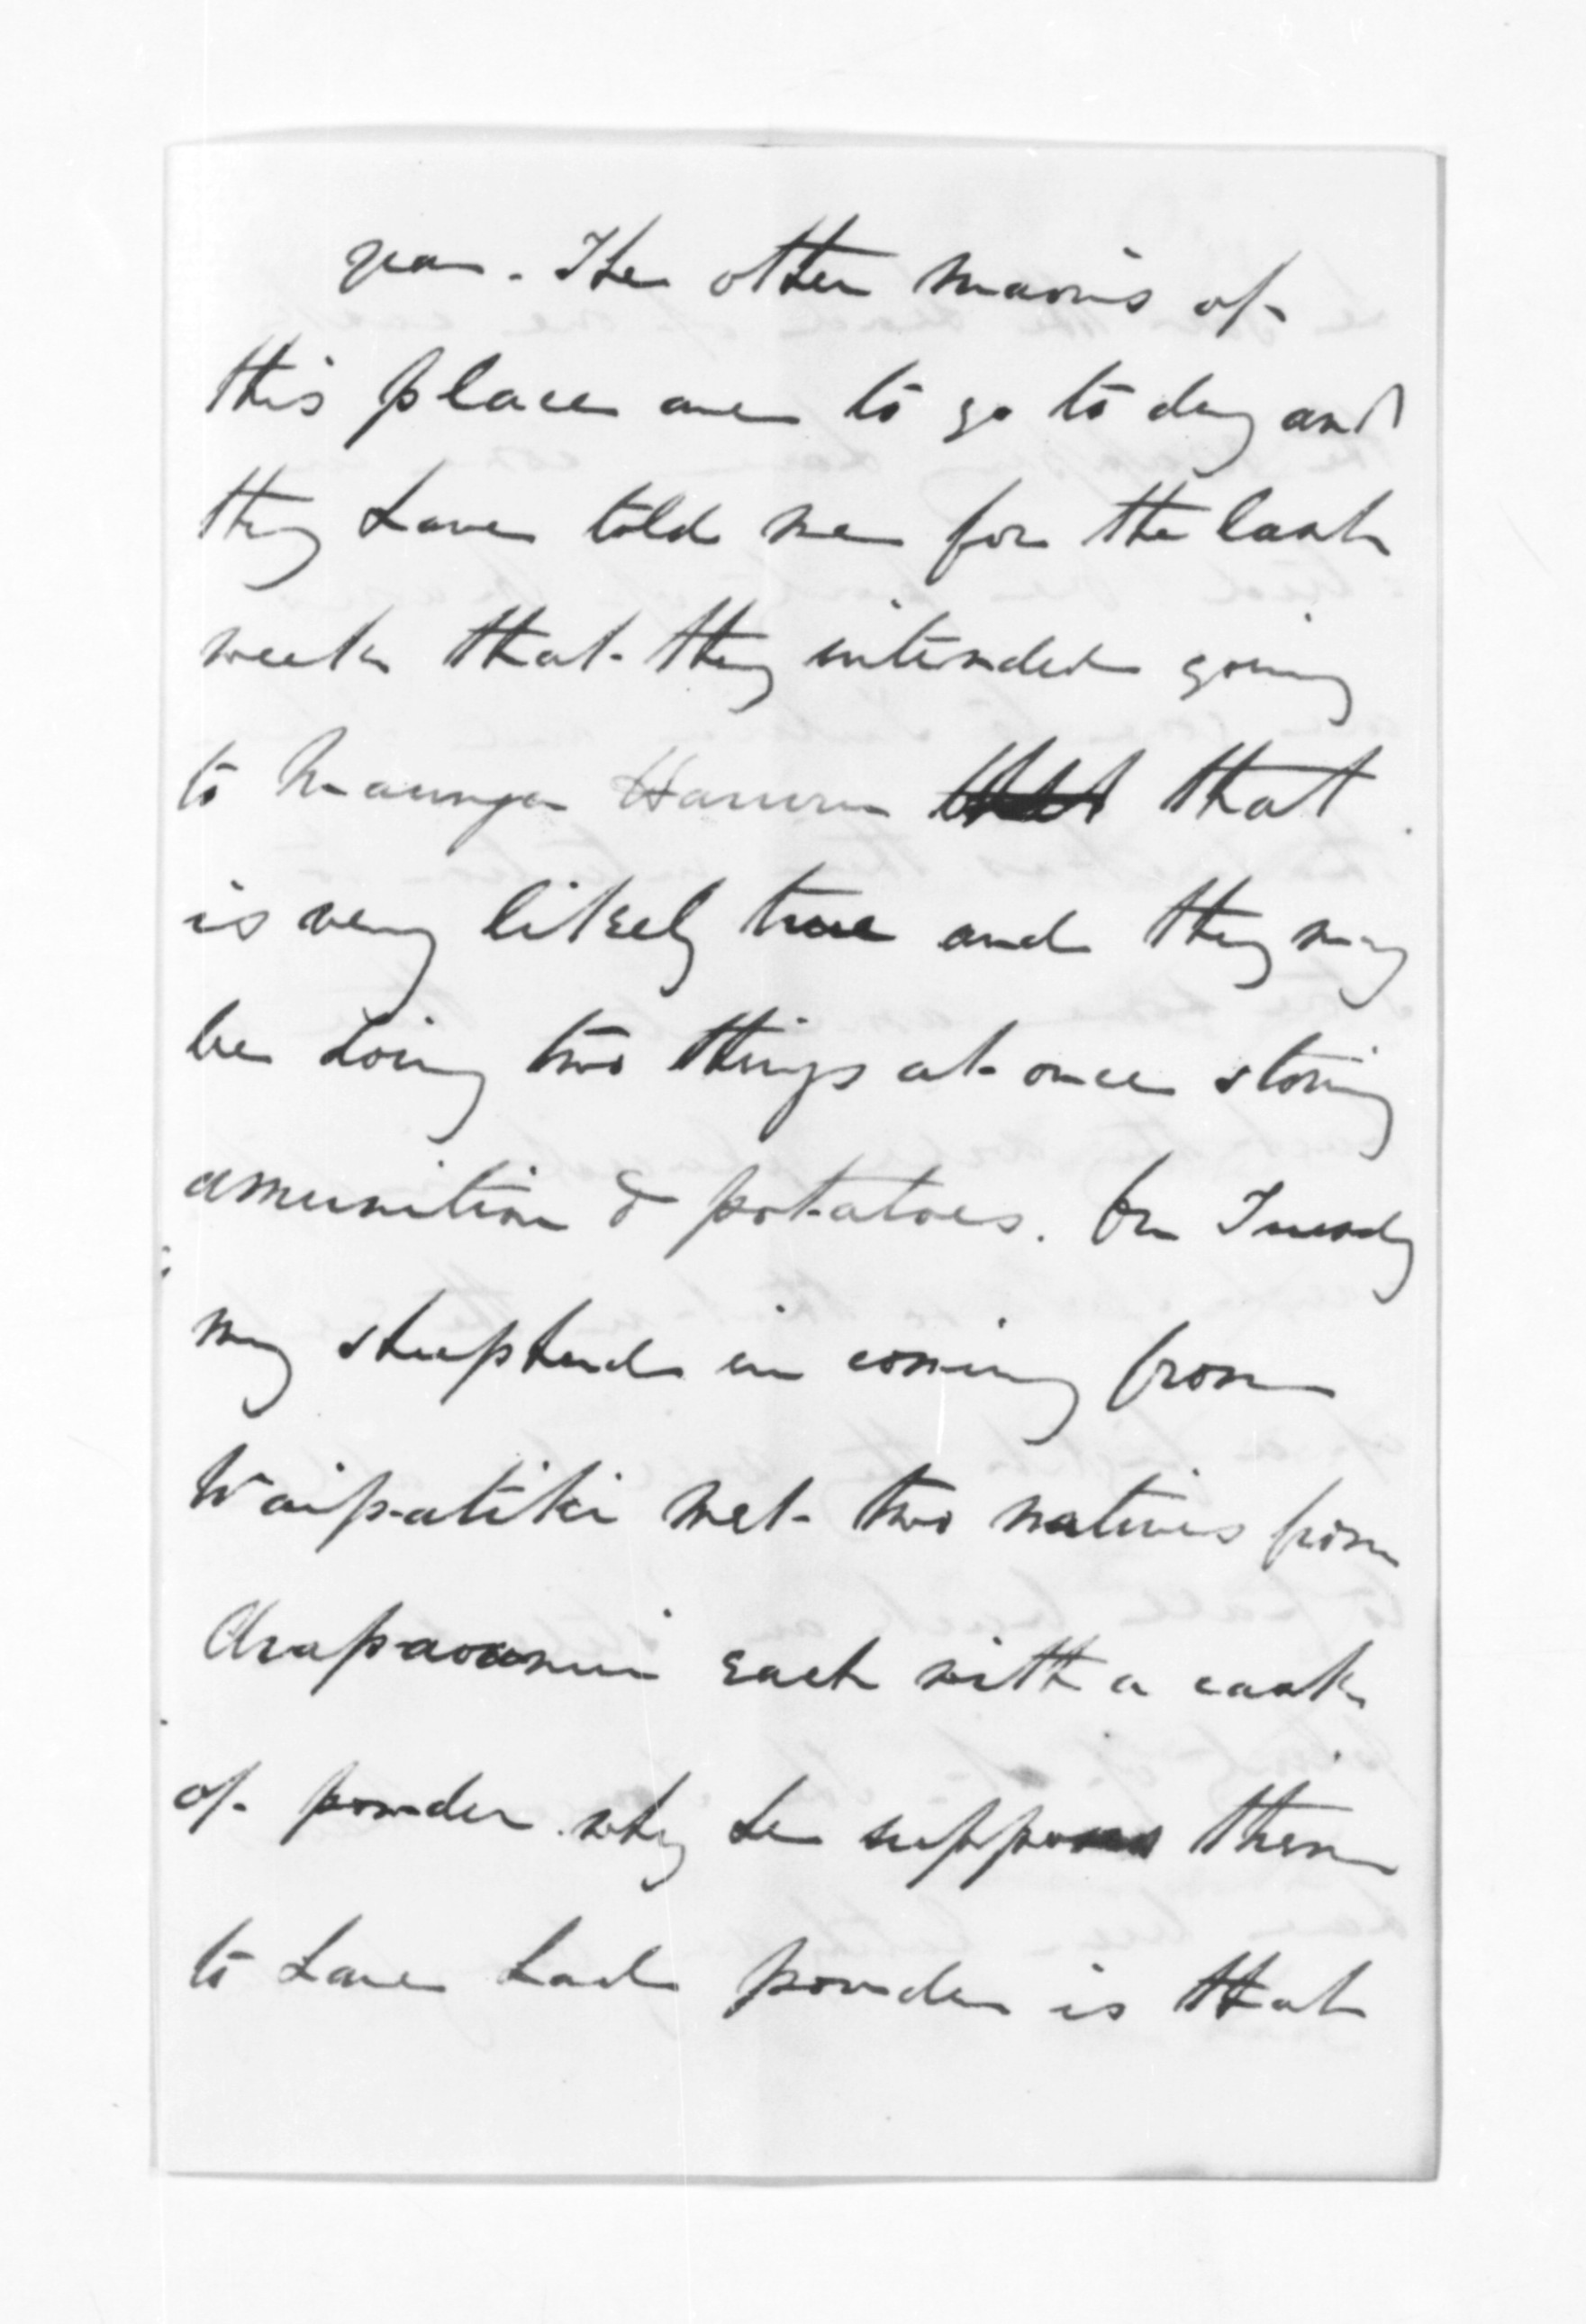 year. The other maoris of
this place are to go to day and
they have told me for the last
week that they intended going
to Maunga Haruru that
is very likely true and they may
be doing two things at once storing
amunition & potatoes. On Tuesday
my shepherd in coming from
Waipatiki met two natives from
Arapaoanui each with a cask
of powder. why he supposes them
to have had powder is that